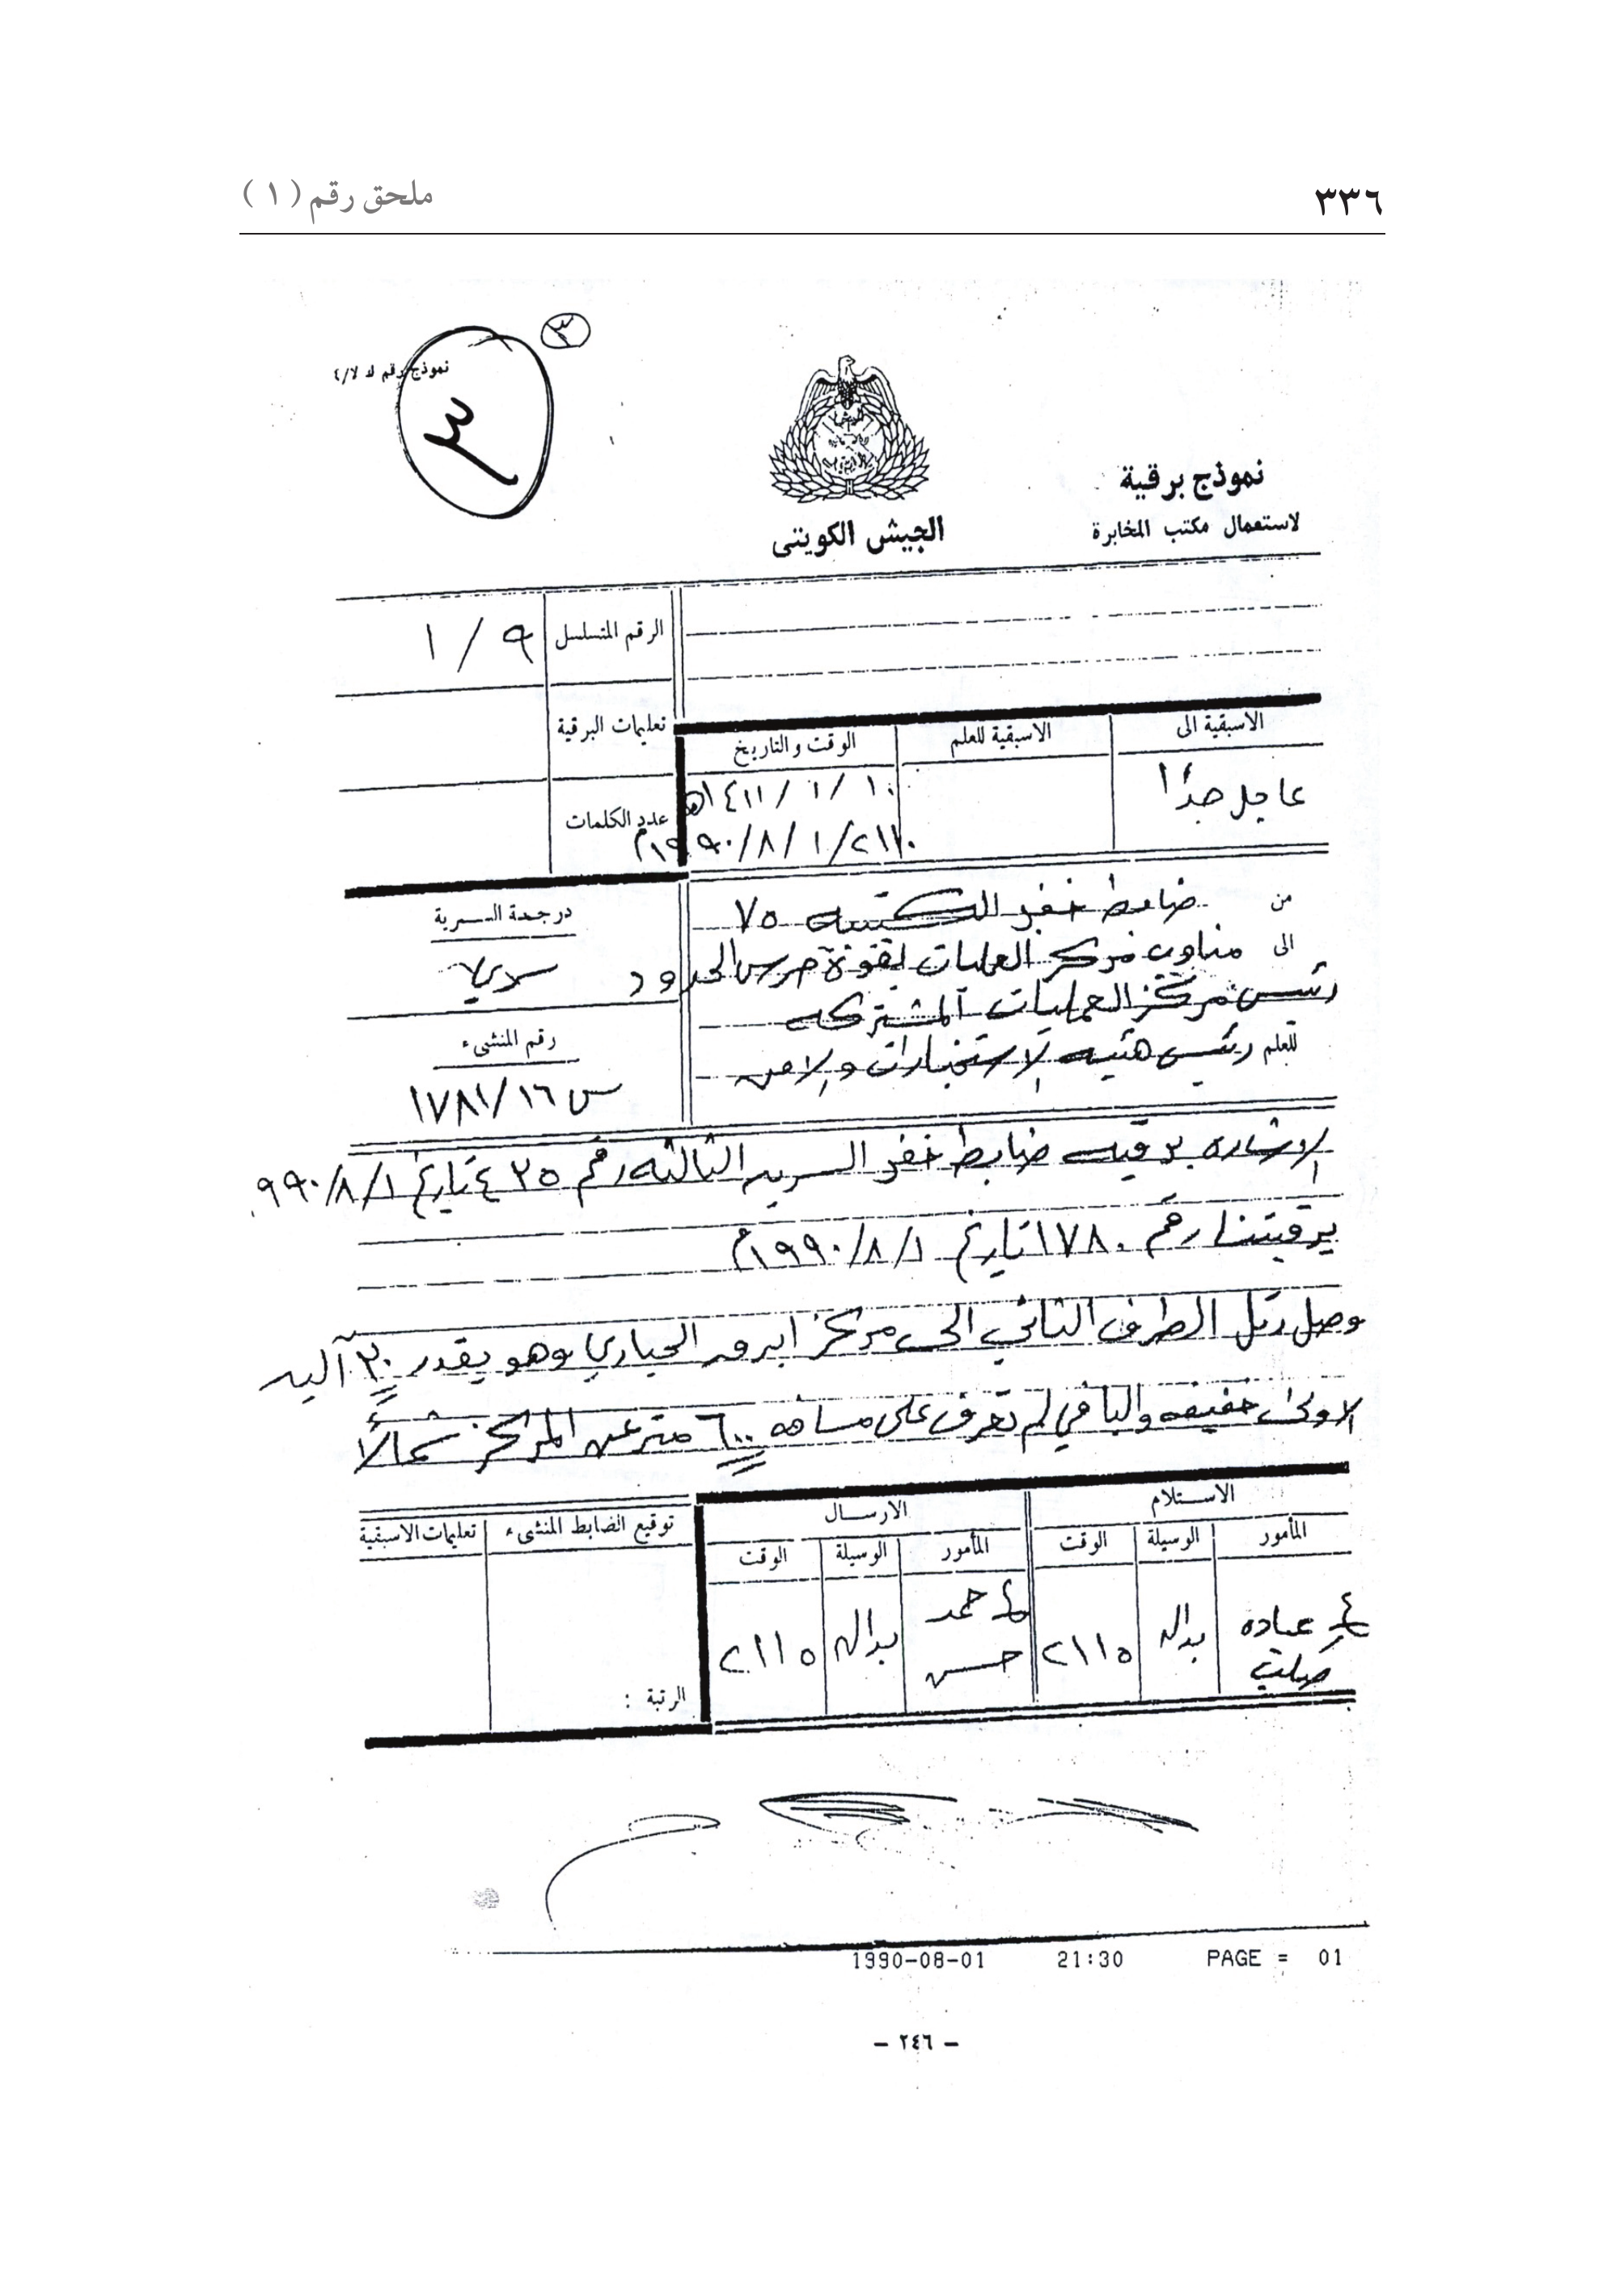 ٣٣٦
ملحق رقم ( ١ )
٣
نموذج رقم لا/٤
٣
نموذج برقية
لاستعمال مكتب المخابرة
الجيش الكويتى
الرقم المتسلسل
٩ / ١
تعليمات البرقية
عدد الكلمات
الاسبقية الى
الاسبقية للعلم
الوقت والتاريخ
عاجل جداً
١٠ / ١ / ١٤١١هـ
٢١١٠/١ /٨/ ١٩٩٠م
من ضابط خفر الكتيبه ٧٥
الى مناوب مركز العمليات لقوة حرس الحدود
رئيس مركز العمليات المشتركه
للعلم رئيس هيئه الاستخبارات والامن
درجة السرية
سري
رقم المنشىء
س ١٧٨١/١٦
الاشاره برقيه ضابط خفر السريه الثالثه رقم ٤٣٥ تاريخ ٩٩٠/٨/١
برقيتنا رقم ١٧٨٠ تاريخ ١٩٩٠/٨/١م
وصل رتل الطرف الثاني الى مركز ابرق الحباري وهو يقدر ٣٠ آليه
الاولى خفيفه والباقي لم تعرف على مسافه ٦٠٠ متر عن المركز شمالاً
الاستلام
الارسال
توقيع الضابط المنشىء
تعليمات الاسبقية
المأمور
الوسيلة
الوقت
المأمور
الوسيلة
الوقت
ع عياده
بداله
٢١١٥
حمد
حسن
بداله
٢١١٥
الرتبة :
1990-08-01 21:30 PAGE = 01
– ٢٤٦ –